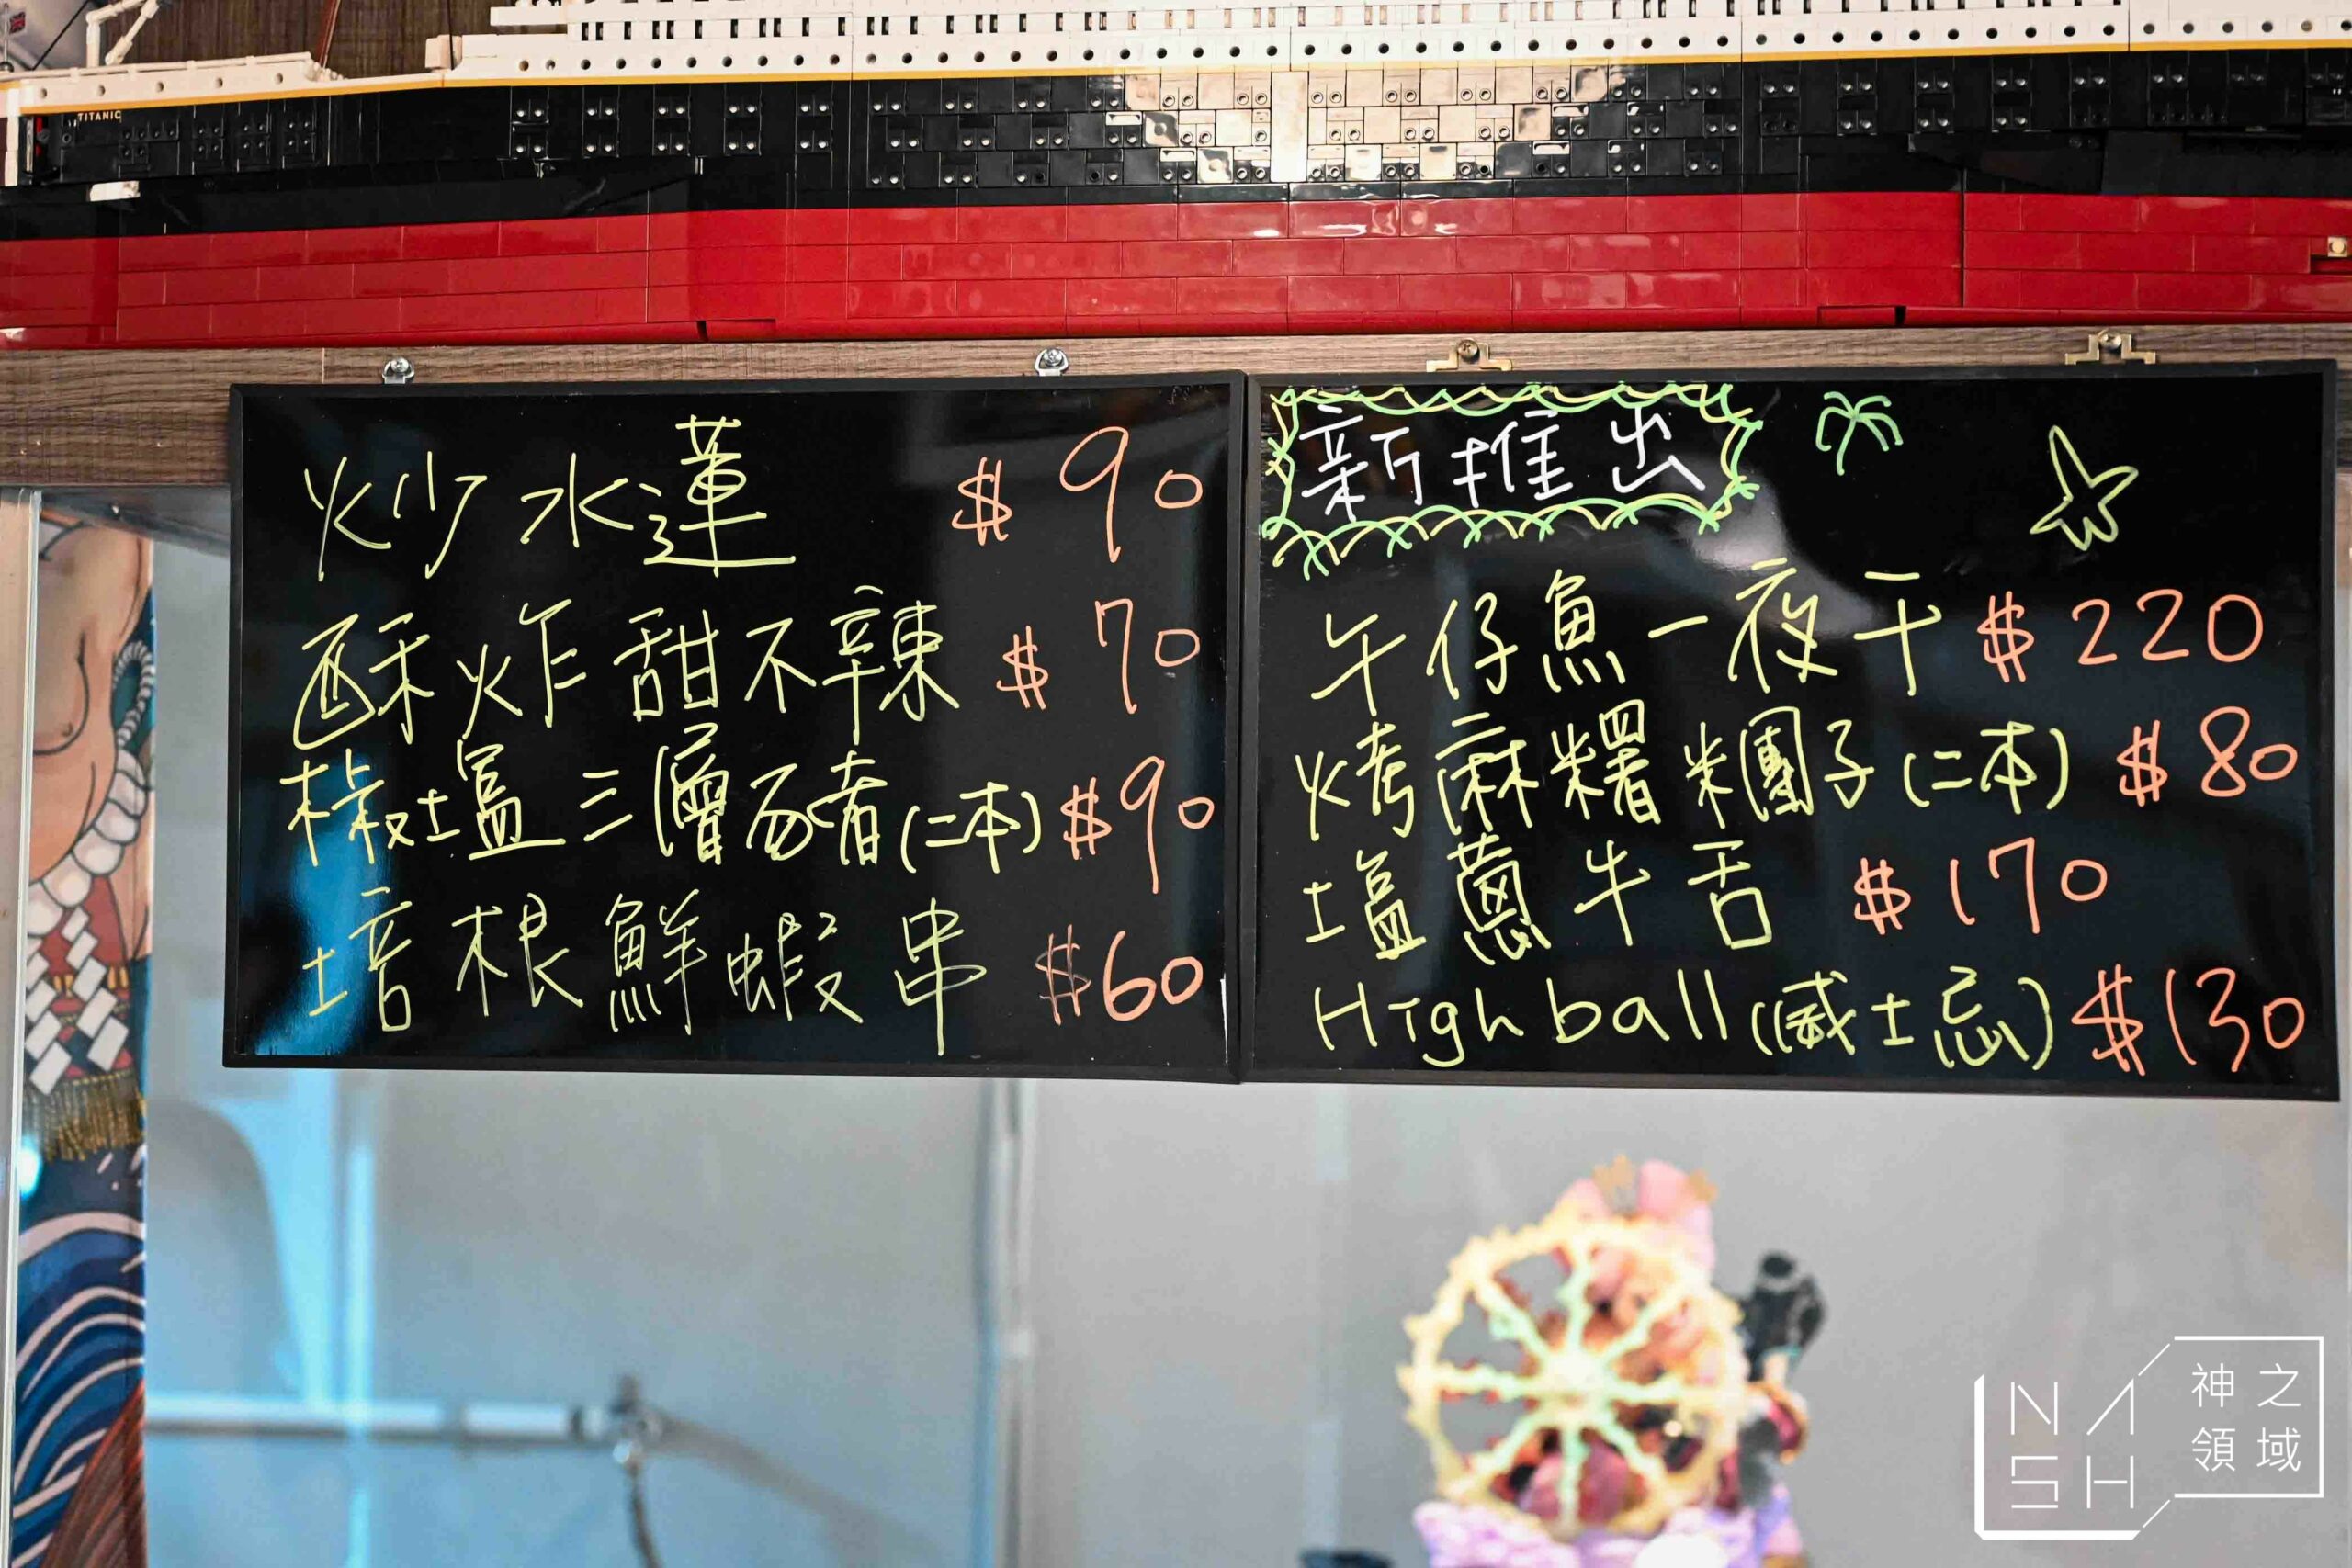 TITANIC
炒水蓮 $90
酥炸甜不辣 $70
椒塩三層肉(二本) $90
培根鮮蝦串 $60
新推出
午仔魚一夜干 $220
烤麻糬米團子(二本) $80
塩蔥牛舌 $170
High ball(威士忌) $130
NASH
神之
領域